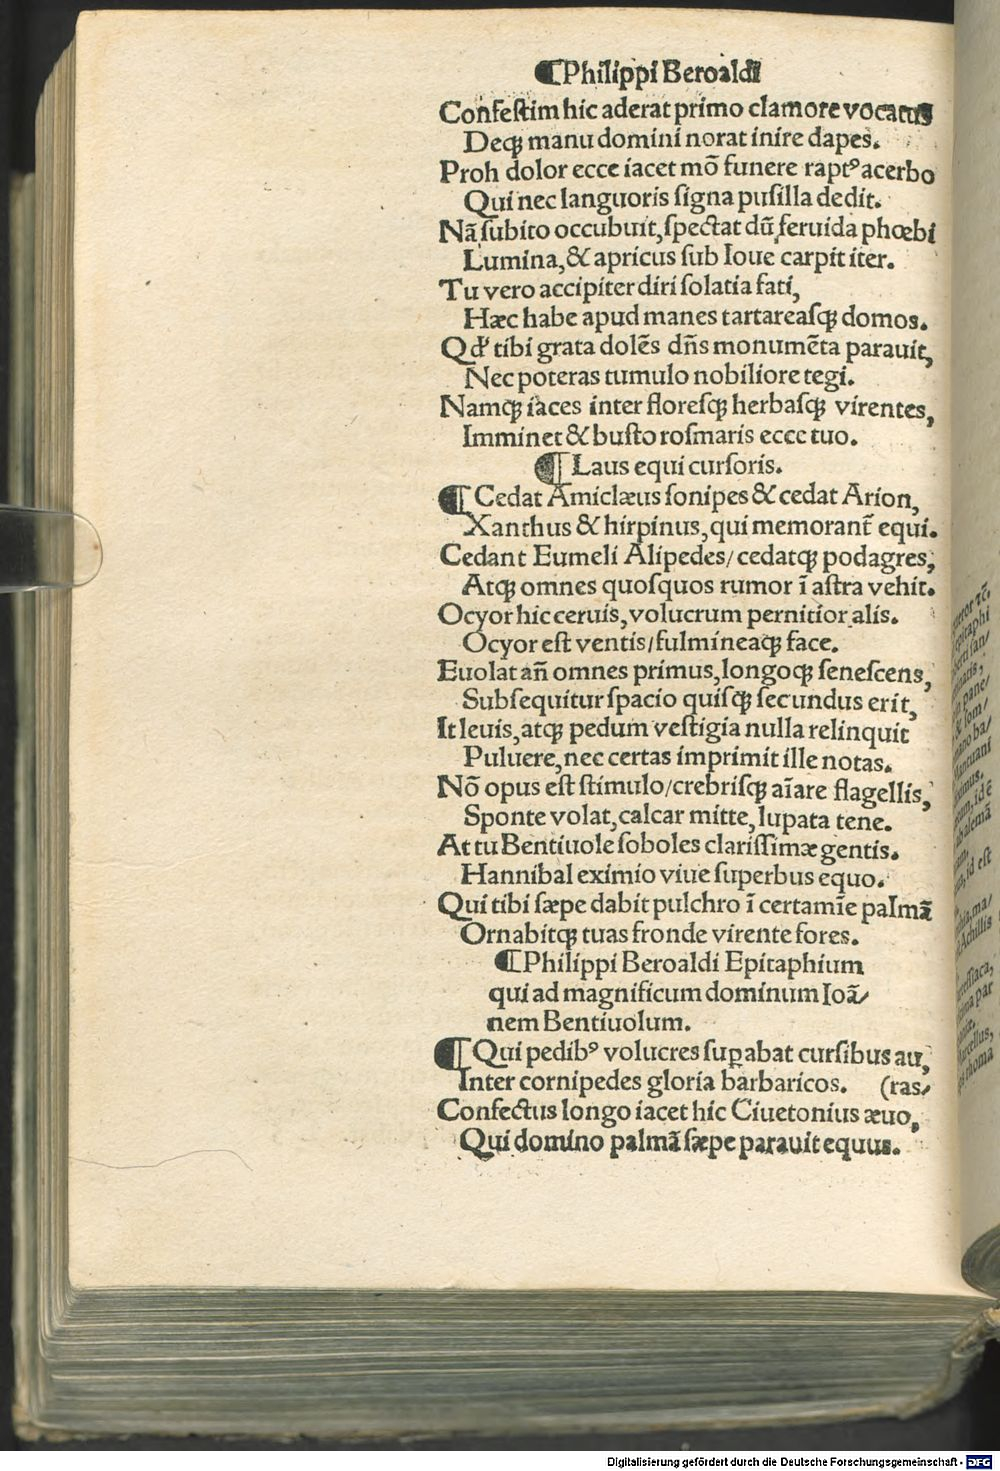 ¶Philippi Beroaldi
Confestim hic aderat primo clamore vocatus
Deqꝫ manu domini norat inire dapes.
Proh dolor ecce iacet mō funere raptꝰ acerbo
Qui nec languoris ſigna puſilla dedit.
Nā ſubito occubuit, ſpectat dū feruida phœbi
Lumina, & apricus ſub Ioue carpit iter.
Tu vero accipiter diri ſolatia fati,
Hæc habe apud manes tartareaſqꝫ domos.
Qd' tibi grata dolēs dn̄s monumēta parauit,
Nec poteras tumulo nobiliore tegi.
Namqꝫ iaces inter floreſqꝫ herbaſqꝫ virentes,
Imminet & buſto roſmaris ecce tuo.
¶ Laus equi curſoris.
¶ Cedat Amiclæus ſonipes & cedat Arion,
Xanthus & hirpinus, qui memorant̄ equi.
Cedant Eumeli Alipedes/ cedatqꝫ podagres,
Atqꝫ omnes quoſquos rumor ī aſtra vehit.
Ocyor hic ceruis, volucrum pernitior alis.
Ocyor eſt ventis/ fulmineaqꝫ face.
Euolat an̄ omnes primus, longoqꝫ ſeneſcens,
Subſequitur ſpacio quiſqꝫ ſecundus erit,
It leuis, atqꝫ pedum veſtigia nulla relinquit
Puluere, nec certas imprimit ille notas.
Nō opus eſt ſtimulo/ crebriſqꝫ aīare flagellis,
Sponte volat, calcar mitte, lupata tene.
At tu Bentiuole ſoboles clariſſimæ gentis.
Hannibal eximio viue ſuperbus equo.
Qui tibi ſæpe dabit pulchro ī certamīe palmā
Ornabitqꝫ tuas fronde virente fores.
¶Philippi Beroaldi Epitaphium
qui ad magnificum dominum Ioā/
nem Bentiuolum.
¶ Qui pedibꝰ volucres ſuꝑabat curſibus au,
Inter cornipedes gloria barbaricos. (ras/
Confectus longo iacet hic Ciuetonius æuo,
Qui domino palmā ſæpe parauit equus.
epitaphi
& ſom/
Mantuani
id eſt
Achillis
Marcellus,
thoma
Digitalisierung gefördert durch die Deutsche Forschungsgemeinschaft - DFG